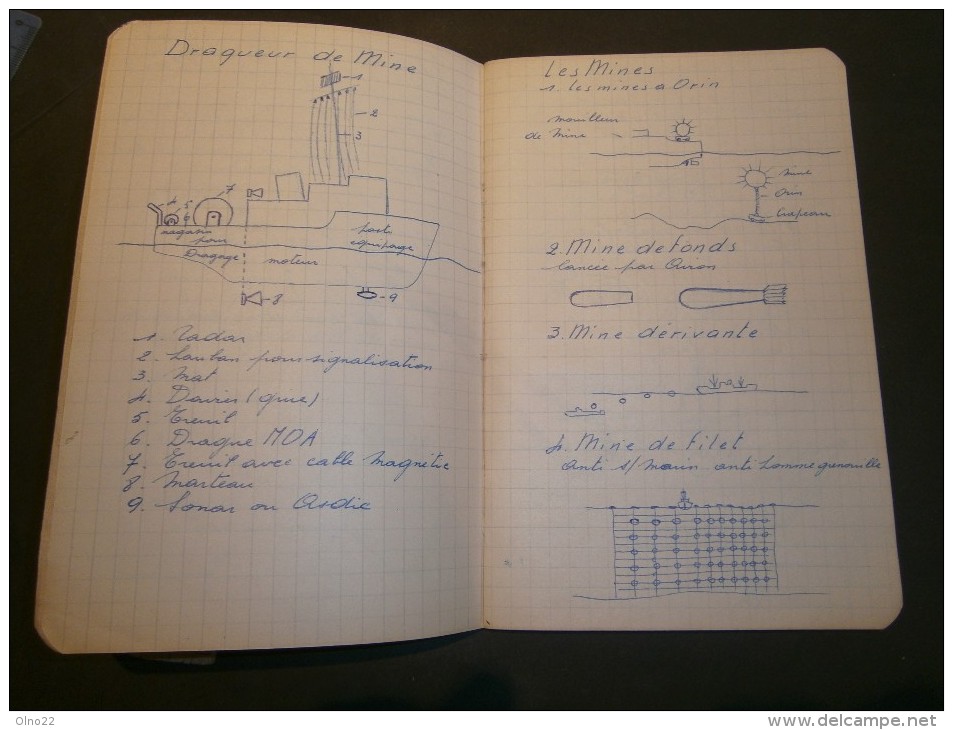 Dragueur de Mine
1
2
3
4
5
6
7
magasin
pour
Dragage
moteur
Post
equipage
8
9
1. Radar
2. Hauban pour signalisation
3. Mat
4. (grue)
5. Treuil
6. Drague MDA
7. Treuil avec cable Magnétic
8. Marteau
9. Sonar ou Asdic
Les Mines
1. les mines a Orin
mouilleur
de Mine
Mine
Orin
Crapeau
2. Mine de fonds
lancée par Avion
3. Mine dérivante
4. Mine de Filet
Anti s/marin anti homme grenouille
Olno22
www.delcampe.net